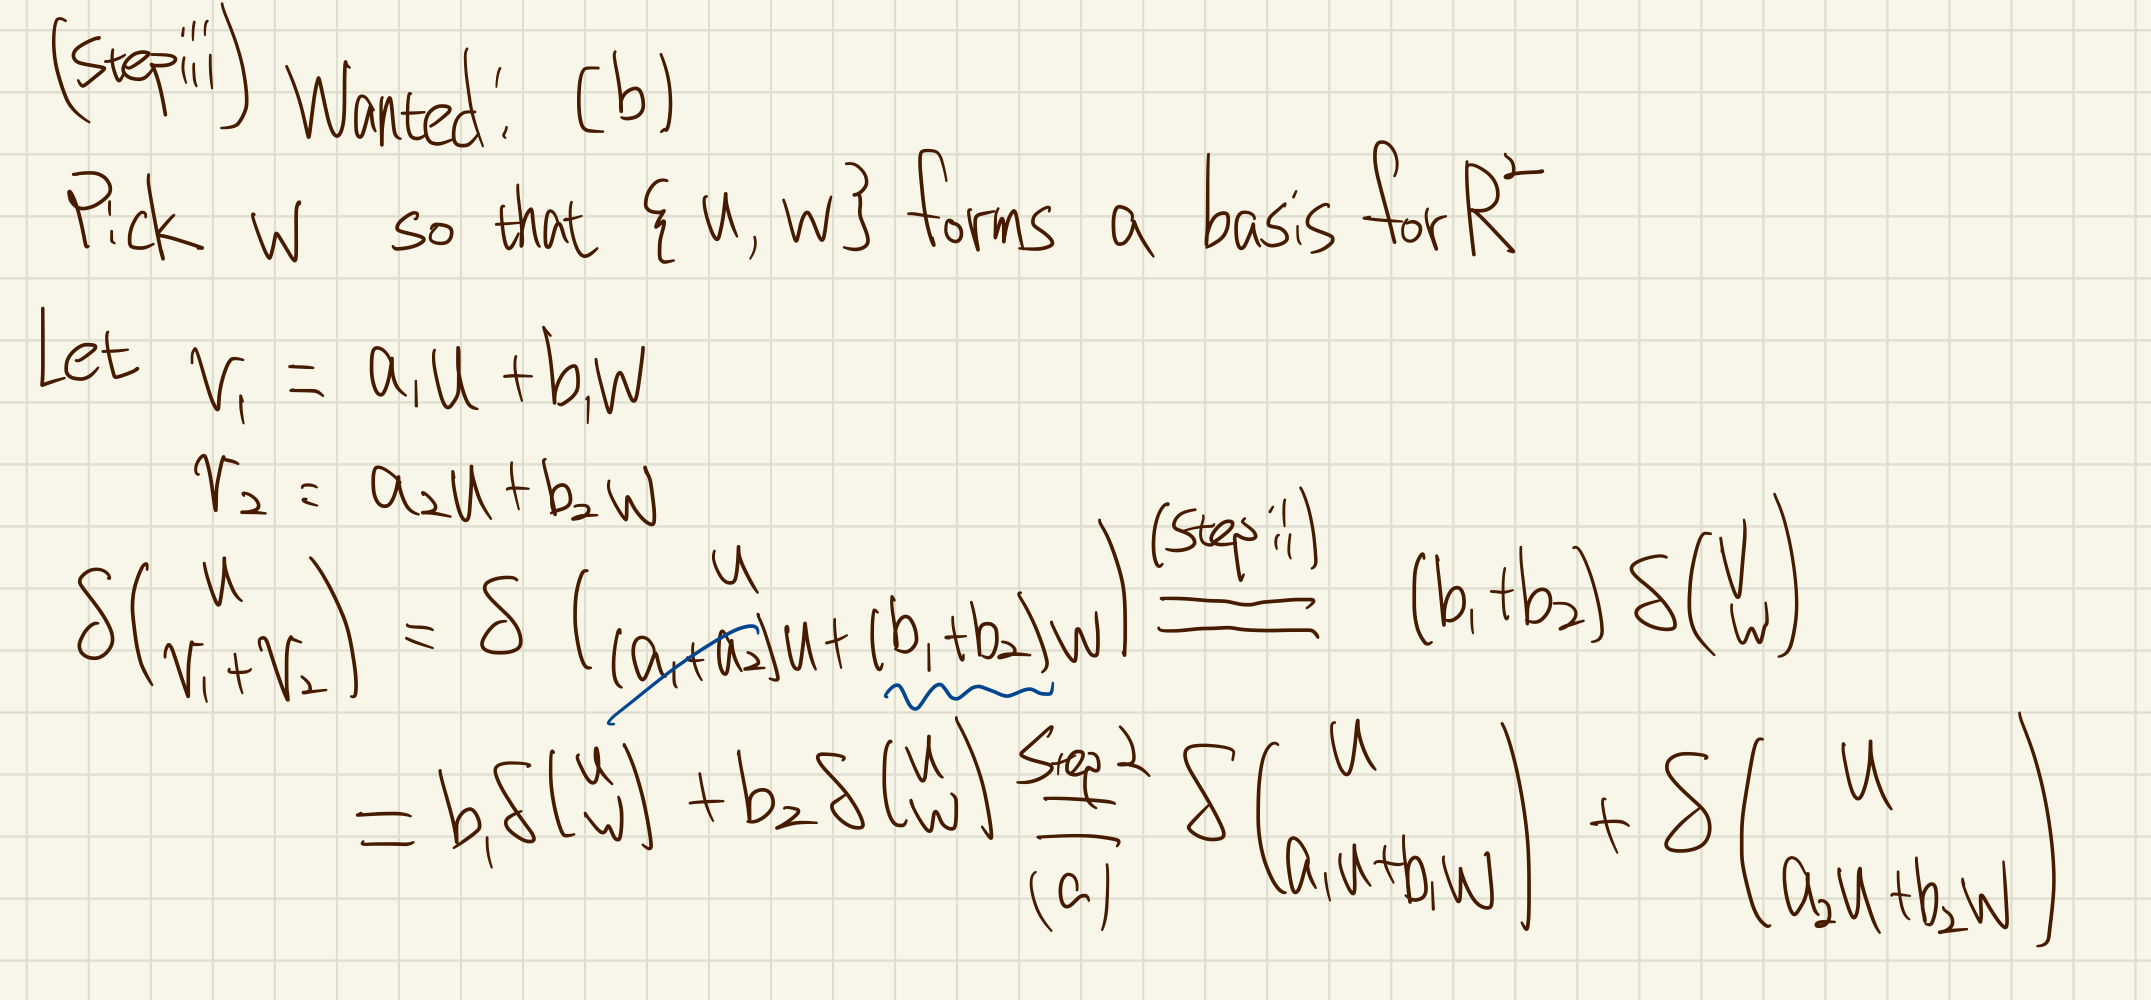 (Step iii) Wanted: (b)
Pick w so that {u, w} forms a basis for R²
Let v₁ = a₁u + b₁w
v₂ = a₂u + b₂w
δ(u / v₁+v₂) = δ(u / (a₁+a₂)u + (b₁+b₂)w) =(Step ii)= (b₁+b₂) δ(u / w)
= b₁δ(u / w) + b₂δ(u / w) =Step 2 (a)= δ(u / a₁u+b₁w) + δ(u / a₂u+b₂w)